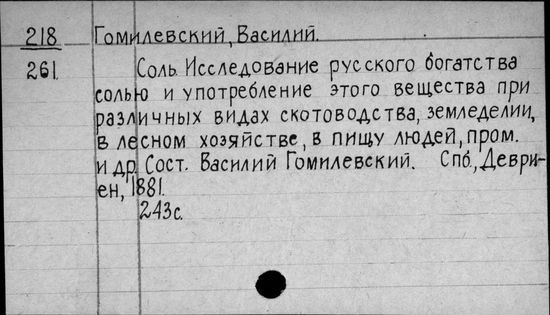 218 Гомилевский, Василий.
261 Соль. Исследование русского богатства
солью и употребление этого вещества при
различных видах скотоводства, земледелии,
в лесном хозяйстве, в пищу людей, пром.
и др. Сост. Василий Гомилевский. Спб., Деври-
ен, 1881.
243с.